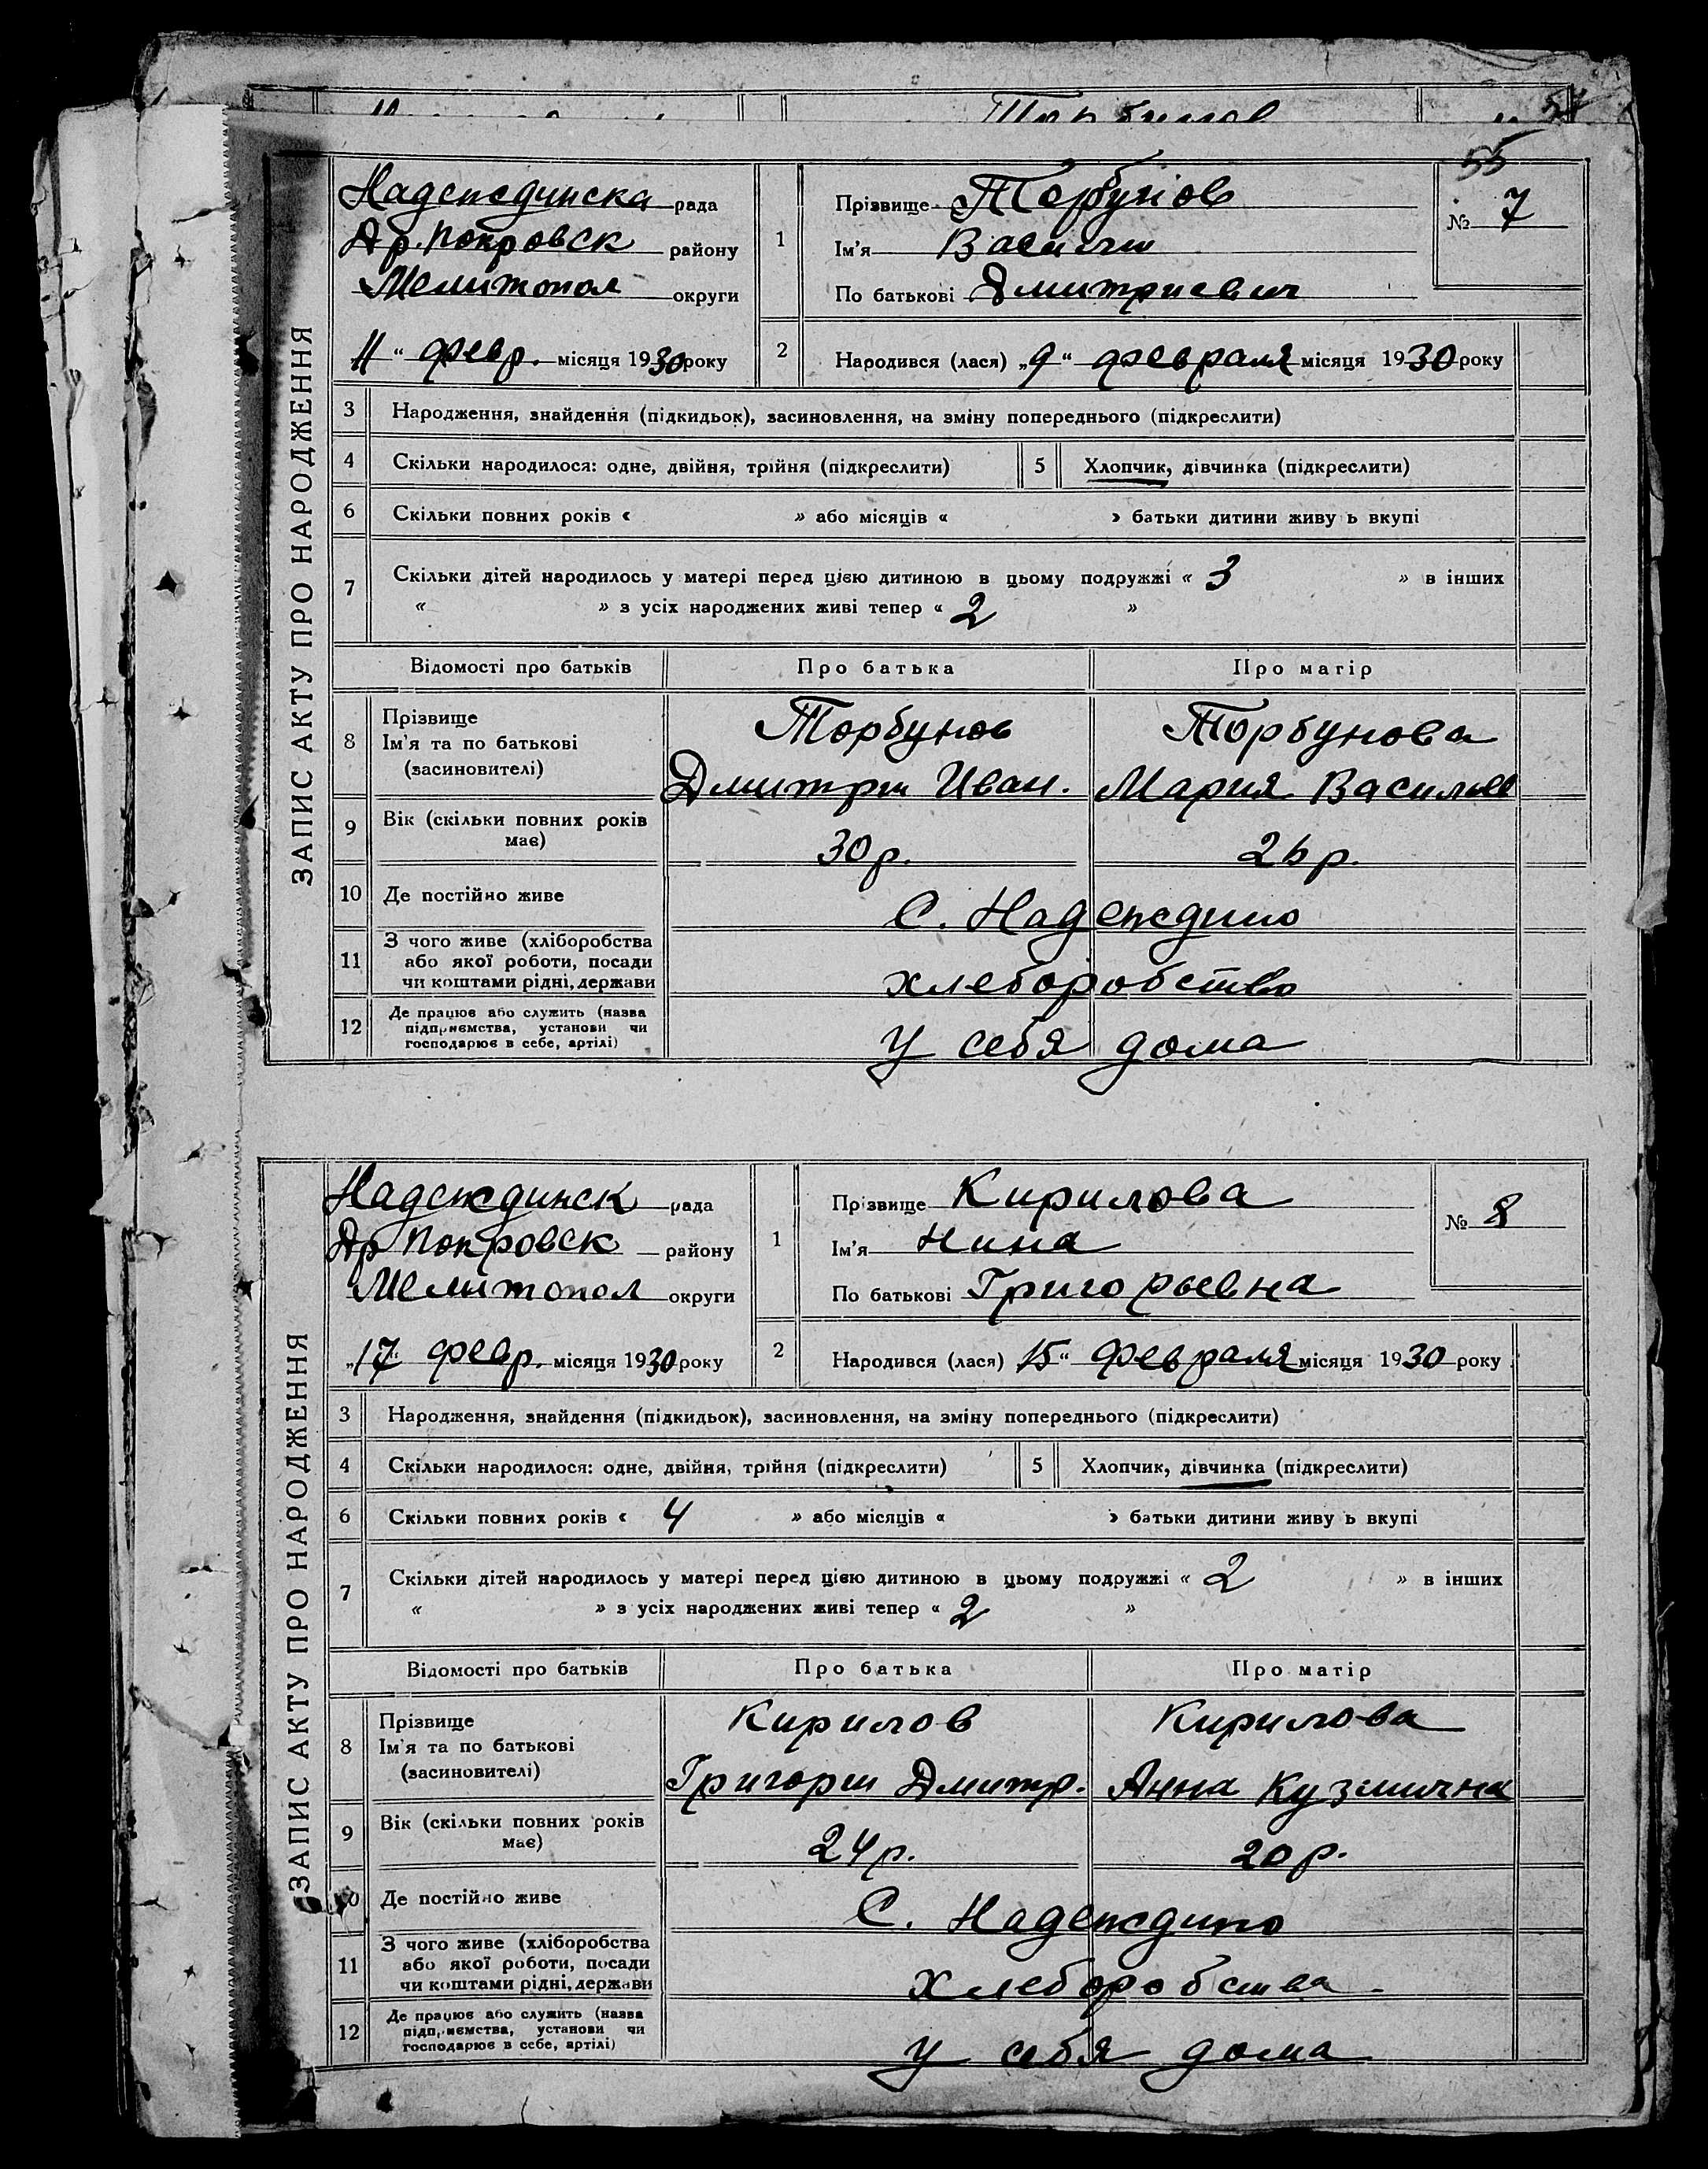 Торбунов
55
ЗАПИС АКТУ ПРО НАРОДЖЕННЯ
Надеждинска рада
Др. Покровск району
Мелитопол округи
11 " февр. місяця 1930 року
1
Прізвище Торбунов
Ім'я Васили
По батькові Дмитриевич
№ 7
2
Народився (лася) „9" февраля місяця 1930 року
3 Народження, знайдення (підкидьок), засиновлення, на зміну попереднього (підкреслити)
4 Скільки народилося: одне, двійня, трійня (підкреслити) 5 Хлопчик, дівчинка (підкреслити)
6 Скільки повних років « » або місяців « » батьки дитини живу ь вкупі
7 Скільки дітей народилось у матері перед цією дитиною в цьому подружжі « 3 » в інших
« » з усіх народжених живі тепер « 2 »
Відомості про батьків Про батька Про матір
8 Прізвище
Ім'я та по батькові
(засиновителі)
Торбунов Торбунова
Дмитри Иван. Мария Васильев
9 Вік (скільки повних років
має)
30 р. 26 р.
10 Де постійно живе С. Надеждино
11 З чого живе (хліборобства
або якої роботи, посади
чи коштами рідні, держави
хлеборобство
12 Де працює або служить (назва
підприємства, установи чи
господарює в себе, артілі)
У себя дома
ЗАПИС АКТУ ПРО НАРОДЖЕННЯ
Надеждинск рада
Др Покровск району
Мелитопол округи
„17" февр. місяця 1930 року
1
Прізвище Кирилова
Ім'я Нина
По батькові Григорьевна
№ 8
2
Народився (лася) 15" февраля місяця 1930 року
3 Народження, знайдення (підкидьок), засиновлення, на зміну попереднього (підкреслити)
4 Скільки народилося: одне, двійня, трійня (підкреслити) 5 Хлопчик, дівчинка (підкреслити)
6 Скільки повних років « 4 » або місяців « » батьки дитини живу ь вкупі
7 Скільки дітей народилось у матері перед цією дитиною в цьому подружжі « 2 » в інших
« » з усіх народжених живі тепер « 2 »
Відомості про батьків Про батька Про матір
8 Прізвище
Ім'я та по батькові
(засиновителі)
Кирилов Кирилова
Григори Дмитр. Анна Кузмична
9 Вік (скільки повних років
має)
24 р. 20 р.
10 Де постійно живе С. Надеждино
11 З чого живе (хліборобства
або якої роботи, посади
чи коштами рідні, держави
Хлеборобства
12 Де працює або служить (назва
підприємства, установи чи
господарює в себе, артілі)
У себя дома